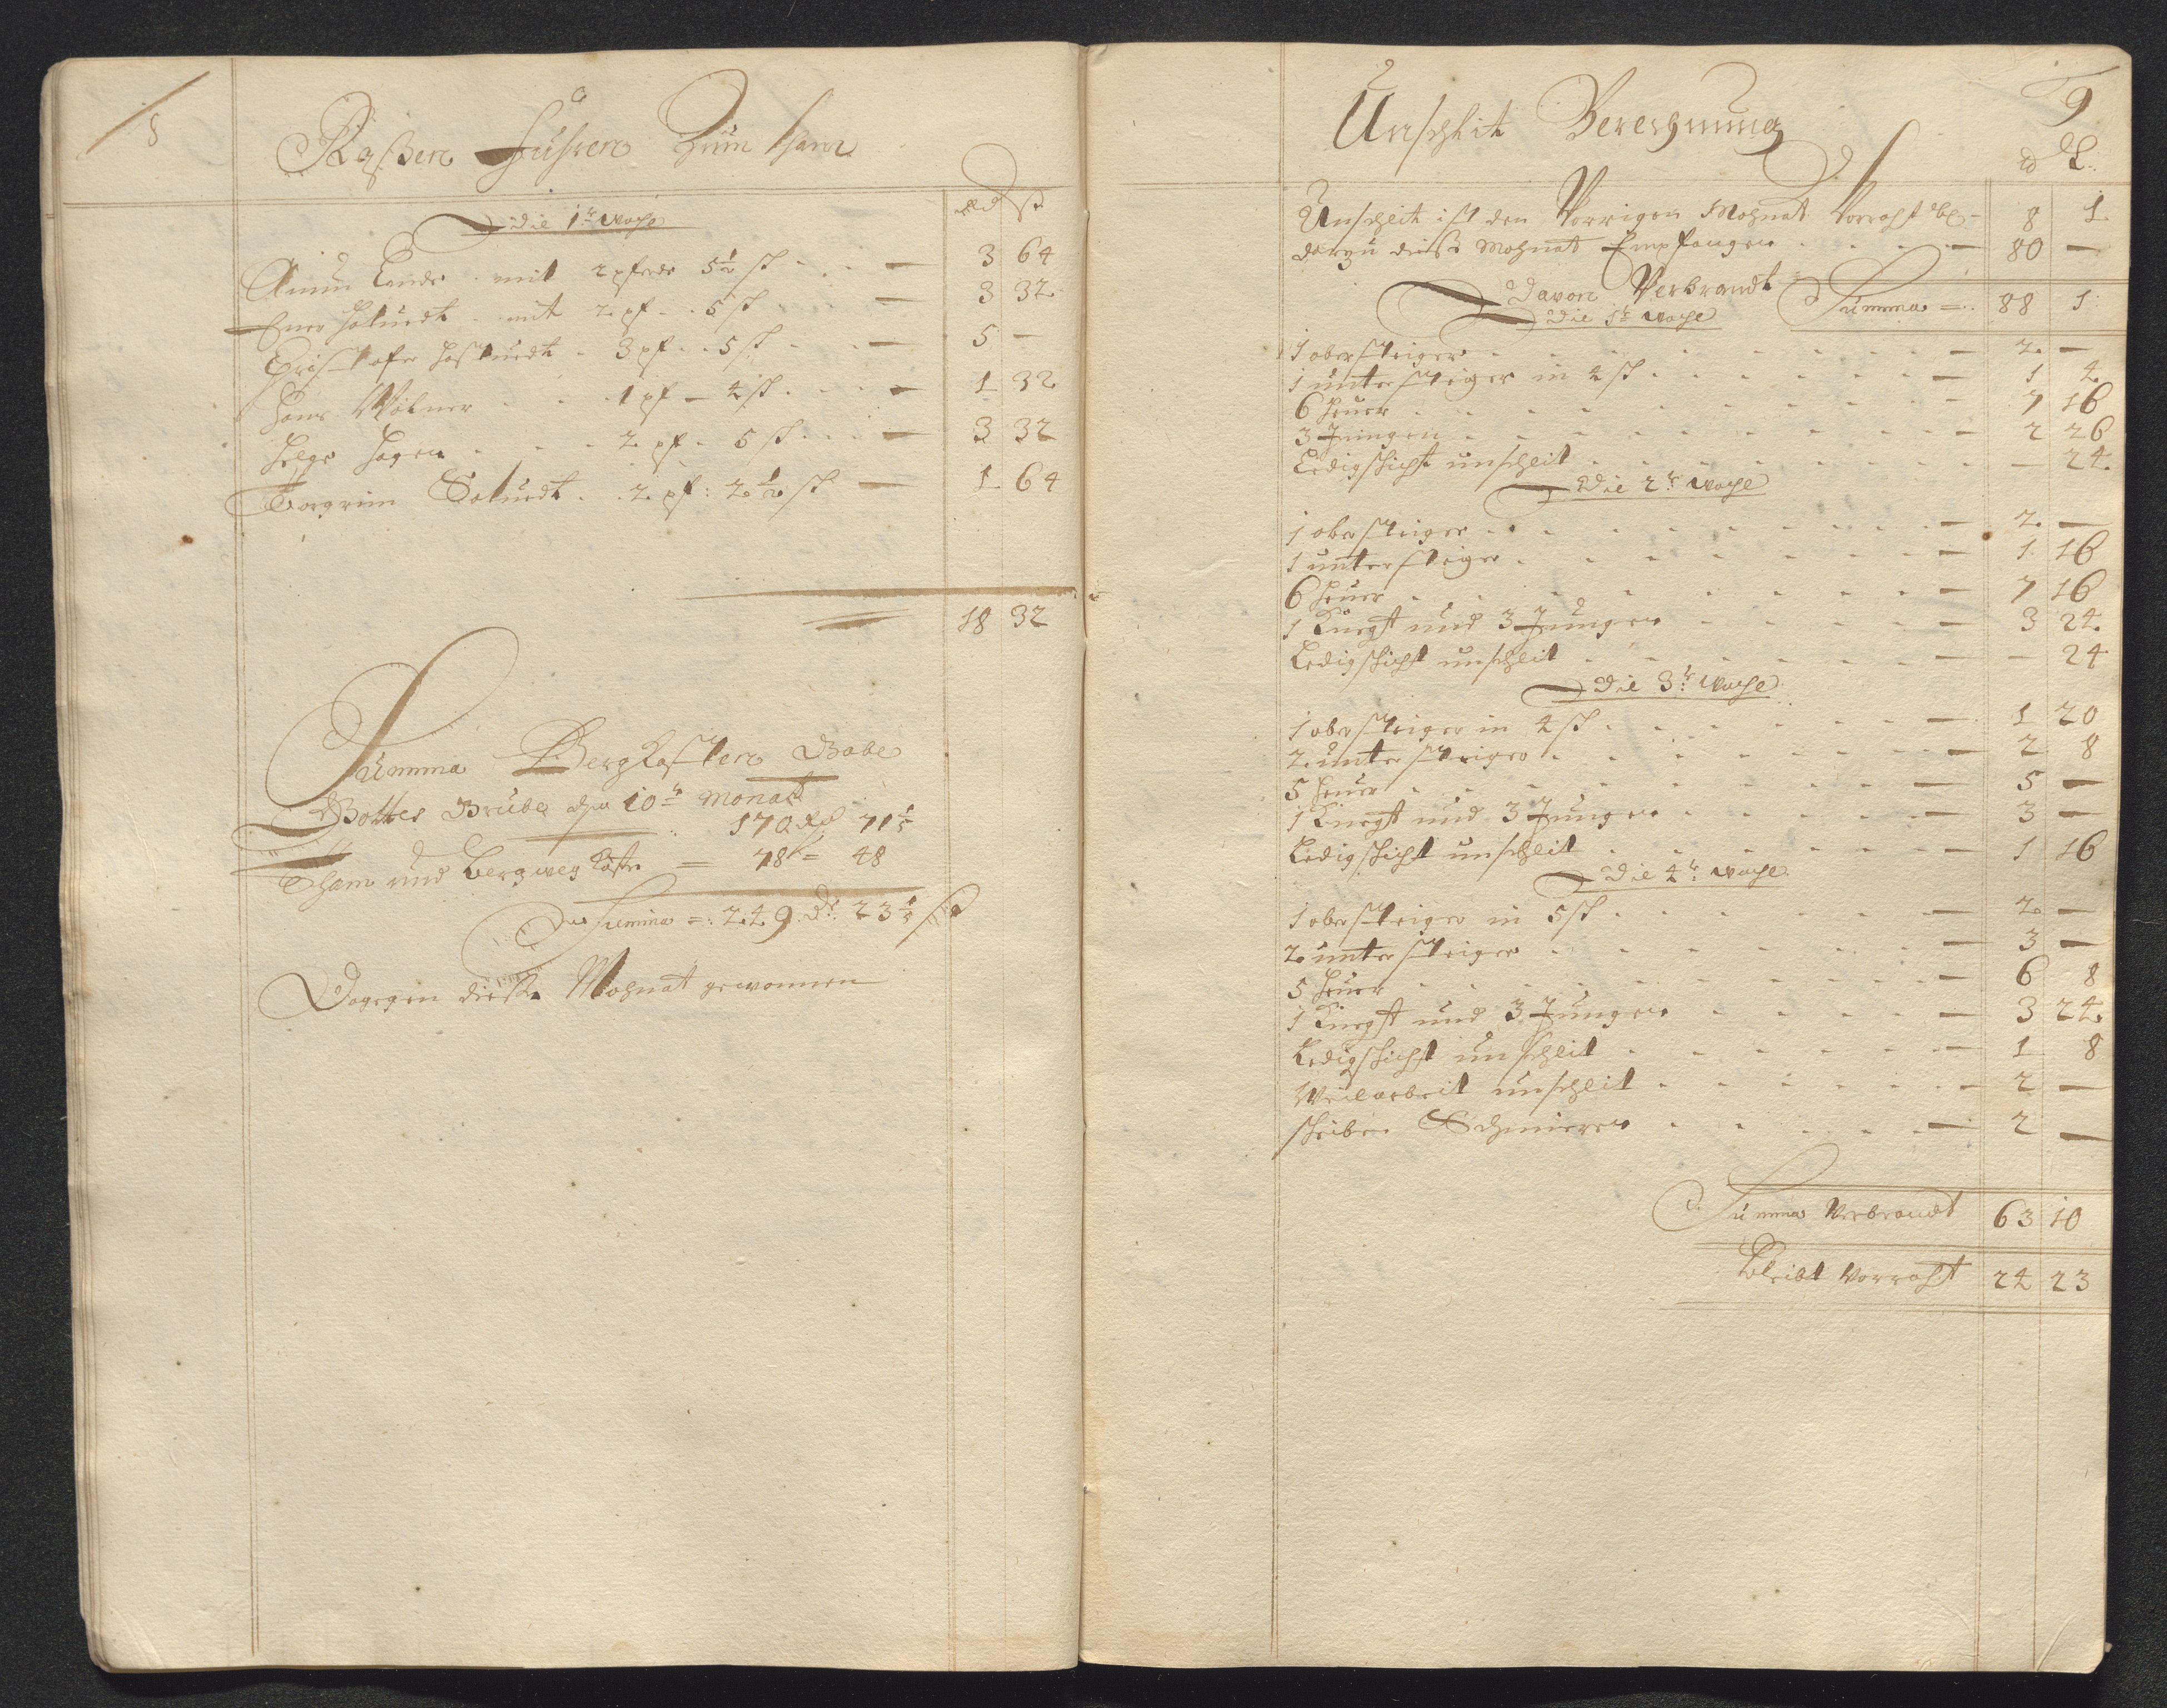 8
Raßen Fuhren Zum tham
Rd ß
Die 1te. woche
Amun Lande. mit 2 pferde 5½ sch - 3 64
Ener Holuedt. mit 2 pf - 5 sch - 3 32
Christofer Hostuedt. 3 pf - 5 sch - 5 -
Hans Wölner 1 pf - 4 sch - 1 32
Helge Hagen 2 pf - 5 sch - 3 32
Torgrim Soluedt. 2 pf: 2½ sch - 1 64
18 32
Summa Bergkosten Gabe
Gottes Grube den 10te Monat
170 Rd 71⅕
Tham und bergweg Kosten = 78 = 48
Summa =: 249. Dr: 23⅕ ß
Dagegen dieße Mohnat gewonnen
9
Unschlit Berechnung
℔ L.
Unschleit ist den Vorrigen Mohnat Vorraht bl- 8 1
darzu dieße Mohnat Empfangen - 80 -
Davon Verbrandt Summa = 88 1
Die 1te woche
1 obersteiger - 2 -
1 untersteiger in 4 sch - 1 4
6 heuer - 7 16
3 Jungen - 2 26
Ledigschicht unschleit - 24
Die 2te woche
1 obersteiger - 2 -
1 untersteiger - 1 16
6 heuer - 7 16
1 Knecht und 3 Jungen - 3 24
Ledigschicht unschleit - 24
Die 3te: woche
1 obersteiger in 4 sch - 1 20
2 untersteiger - 2 8
5 heuer - 5 -
1 Knecht und 3 Jungen - 3 -
Ledigschicht unschleit - 1 16
Die 4te: woche
1 obersteiger in 5 sch - 2 -
2 untersteiger - 3 -
5 heuer - 6 8
1 Knecht und 3 Jungen - 3 24
Ledigschicht unschleit - 1 8
Weilarbeit unschleit - 2 -
scheiben Schmieren - 2 -
Summa Verbrandt 63 10
Bleibt Vorraht 24 23